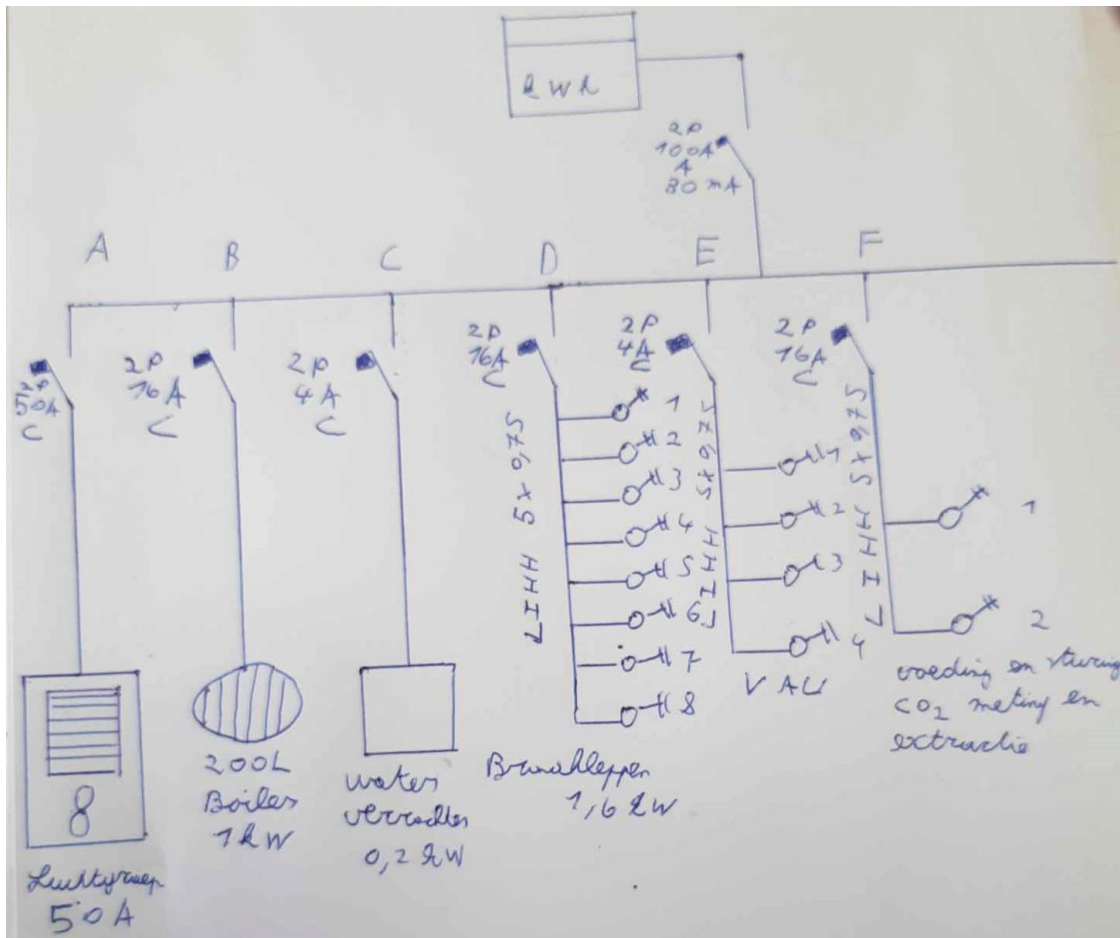 kWh
2P
100A
A
30 mA
A
B
C
D
E
F
2P
50A
C
2P
16A
C
2P
4A
C
2P
16A
C
2P
4A
C
2P
16A
C
LIHH 5x0,75
LIHH 5x0,75
LIHH 5x0,75
1
2
3
4
5
6
7
8
1
2
3
4
1
2
8
Luchtgroep
50A
200L
Boiler
1kW
water
verzachter
0,2 kW
Brandkleppen
1,6 kW
VAV
voeding en sturing
CO2 meting en
extractie